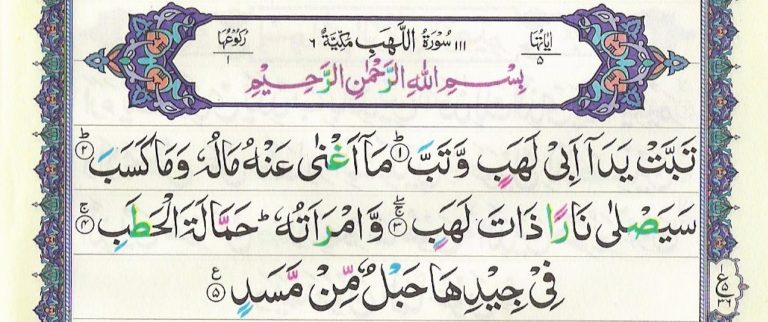 اٰيَاتُهَا ٥ ١١١ سُوْرَةُ اللَّهَبِ مَكِّيَّةٌ ٦ رُكُوْعُهَا ١
بِسْمِ اللّٰهِ الرَّحْمٰنِ الرَّحِيْمِ
تَبَّتْ يَدَاۤ اَبِيْ لَهَبٍ وَّتَبَّ ؕ‏ ١ مَاۤ اَغْنٰى عَنْهُ مَالُهٗ وَمَا كَسَبَ ؕ‏ ٢
سَيَصْلٰى نَارًا ذَاتَ لَهَبٍ ۖۚ‏ ٣ وَّامْرَاَتُهٗ ؕ حَمَّالَةَ الْحَطَبِ‌ ۚ‏ ٤
فِيْ جِيْدِهَا حَبْلٌ مِّنْ مَّسَدٍ ٥
ع ١ ٥ ٣٦